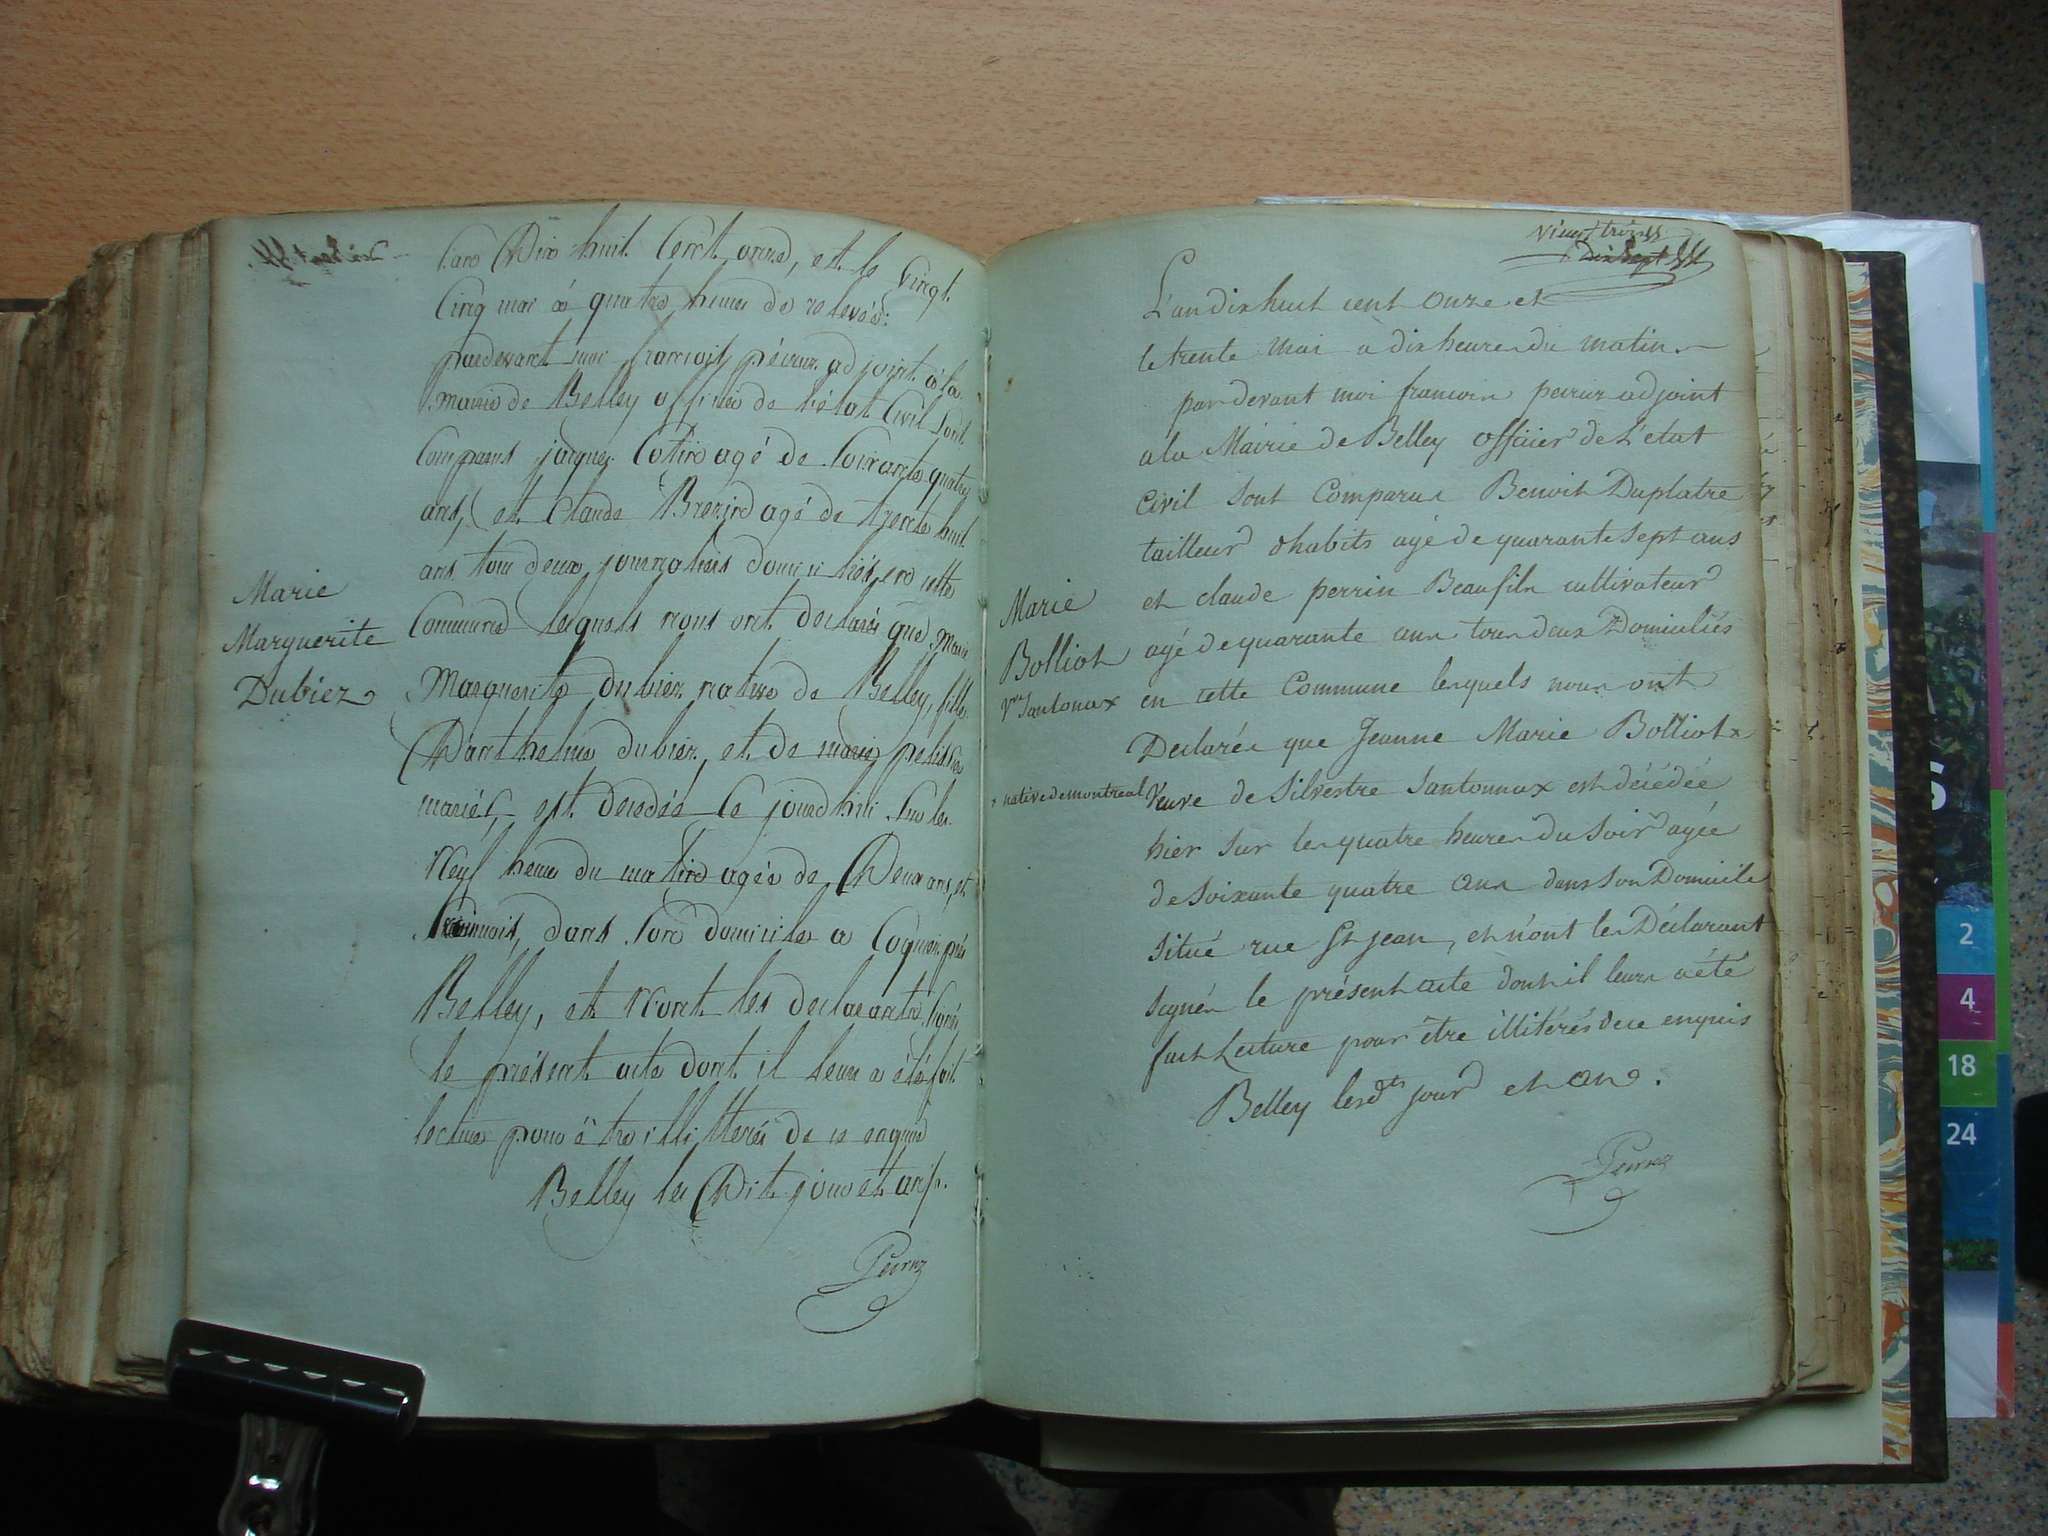 L'an Dix huit Cent onze, et le vingt
Cinq mai à quatre heures de relevée
pardevant moi françois péiruz adjoint à la
mairie de Belley officier de l'état Civil sont
Comparus jacques Cotin agé de soixante quatre
ans, et Claude Brezind agé de trente huit
ans tous deux journaliers domiciliés en cette
Commune lesquels nous ont declarés que Marie
Marie
Marguerite
Dubiez
Marguerite dubiez native de Belley, fille
D'anthelme dubiez, et de marie pelisse
mariés, est decedée ce jourd'hui sur les
Neuf heures du matin agée de Deux ans, et
mois, dans son domicile a Coquin près
Belley, et N'ont les declarants signés
le présent acte dont il leur a été fait
lecture pour être illitterés de ce enquis
Belley les Dit jour et an.
Peiruz
vingt trois
Dix Sept
L'an dix huit cent onze et
le trente mai a dix heures du matin
par devant moi francois peiruz adjoint
a la Mairie de Belley officier de L'etat
Civil sont Comparus Benoit Duplatre
tailleur d'habits agé de quarante sept ans
et claude perrin Beaufils cultivateur
agé de quarante ans tous deux Domiciliés
en cette Commune lesquels nous ont
Declarés que Jeanne Marie Bolliot x
Veuve de Silvestre Santonnax est décédée
hier sur les quatre heures du Soir agée
de Soixante quatre ans dans son Domicile
situé rue St jean, et n'ont les Déclarant
signés le présent acte dont il leur a été
fait Lecture pour être illitérés de ce enquis
Belley lesdts jour et an.
Marie
Bolliot
Vve Santonax
x native de montreal
Peiruz
2
4
18
24